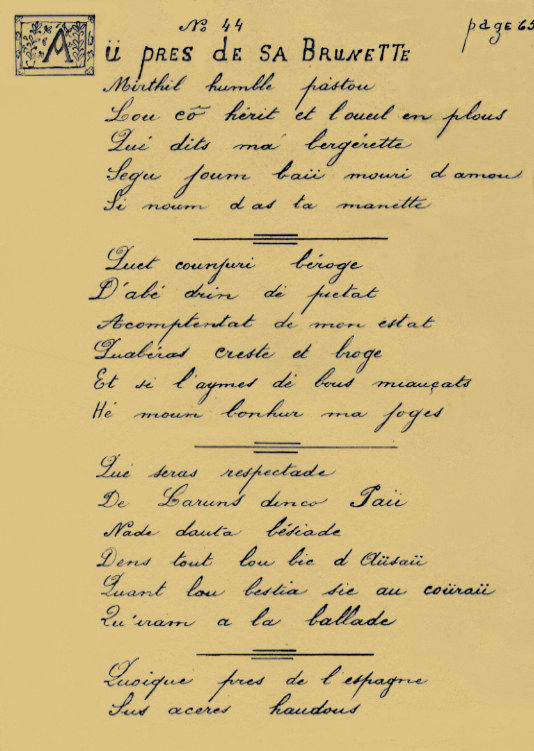 No 44
page 65
Aü pres de sa Brunette
Mirthil humble pastou
Lou cô hérit et l'oueul en plous
Qué dits ma bergérette
Segu joum baii mouri d'amou
Si noum das ta manette
Quet counjuri béroge
D'abé drin dé pietat
Acomptentat de mon estat
Quabéras creste et broge
Et si l'aymes dé bous miauçats
Hé moun bonhur ma joges
Qué seras respectade
De Laruns dinco Paü
Nade dauta bésiade
Dens tout lou bic d'Aüsaü
Quant lou bestia sie au coüraü
Qu'iram a la ballade
Quoique pres de l'espagne
Sus aceres haudous